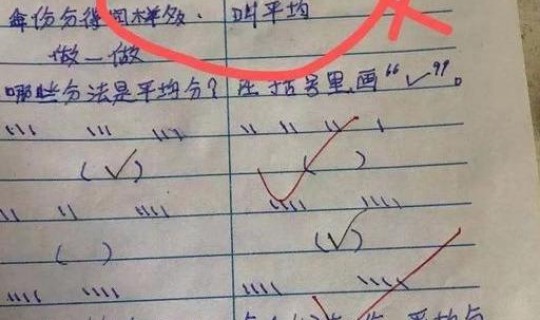 每份分得同样多. 叫平均
做一做
哪些分法是平均分? 在括号里画“✓”。
(✓) ( )
( ) (✓)